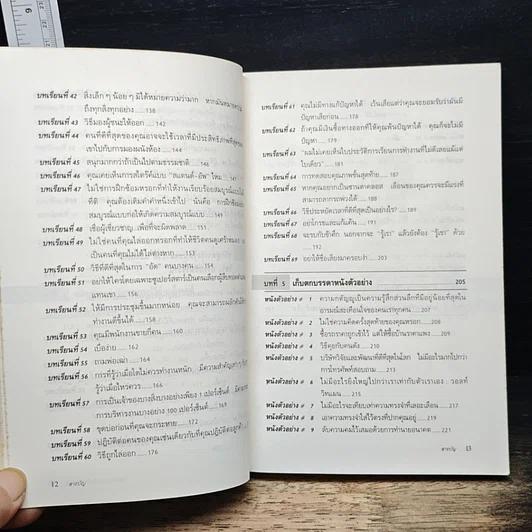 บทเรียนที่ 42 สิ่งเล็ก ๆ น้อย ๆ มิได้หมายความว่ามาก หากมันหมายความ
ถึงทุกสิ่งทุกอย่าง .....138
บทเรียนที่ 43 วิธีมองผู้ชนะให้ออก .....142
บทเรียนที่ 44 คนที่ดีที่สุดของคุณอาจจะใช้เวลาที่มีประสิทธิภาพที่สุดของ
เขาไปกับการมองผนังห้อง .....144
บทเรียนที่ 45 สนุกมากกว่าถ้าเป็นไปตามธรรมชาติ .....146
บทเรียนที่ 46 คุณเคยเห็นการไดเร็คท์แบบ "สแตนด์-อัพ" ไหม
บทเรียนที่ 47 ไม่ใช่การฝึกซ้อมหรอกที่ทำให้งานเรียบร้อยสมบูรณ์แบบ
ที่ดี คุณต้องเติมคำคำหนึ่งเข้าไป นั่นคือ การฝึกซ้อมที่
สมบูรณ์แบบก่อให้เกิดความสมบูรณ์แบบ .....
บทเรียนที่ 48 เชื่อผู้เชี่ยวชาญ ...เพื่อที่จะผิดพลาด
บทเรียนที่ 49 ไม่ใช่คนที่คุณไล่ออกหรอกที่ทำให้ชีวิตคนคุณเศร้าหมอง
เป็นคนที่คุณไม่ได้ไล่ต่างหาก
บทเรียนที่ 50 วิธีที่ดีที่สุดในการ "อัด" คนบางคน
บทเรียนที่ 51 อย่าให้ใครโดยเฉพาะซูเปอร์สตาร์เป็นคนเลือกผู้สืบทอด
แทนเขา
บทเรียนที่ 52 ให้มีการประชุมขึ้นมากหน่อย คุณจะสามารถผลักดัน
ทำงานดีขึ้นได้
บทเรียนที่ 53 คุณมีพนักงานขายกี่คน
บทเรียนที่ 54 เบี้ยล่าง
บทเรียนที่ 55 ถามพ่อเฒ่า
บทเรียนที่ 56 การที่รู้ว่าเมื่อใดไม่ควรทำงานหนัก มีความสำคัญเท่า ๆ กับ
รู้ว่าเมื่อไหร่ควร
บทเรียนที่ 57 การเป็นเจ้าของบางสิ่งบางอย่างเพียง 1 เปอร์เซ็นต์ มีค่ากว่า
การบริหารงานบางอย่าง 100 เปอร์เซ็นต์
บทเรียนที่ 58 ชุดบอก่อนที่คุณจะกระหาย .....172
บทเรียนที่ 59 ปฏิบัติต่อคนของคุณเช่นเดียวกับที่คุณปฏิบัติต่อลูกค้า
บทเรียนที่ 60 วิธีถูกไล่ออก .....176
12 สารบัญ
บทเรียนที่ 61 คุณไม่มีทางแก้ปัญหาได้ เว้นเสียแต่ว่าคุณจะยอมรับว่ามันมี
ปัญหาเสียก่อน .....178
บทเรียนที่ 62 ถ้าคุณมีเงินซื้อทางออกที่ให้คุณพ้นปัญหาได้ คุณก็จะไม่มี
ปัญหา .....179
บทเรียนที่ 63 "ผมไม่เคยเห็นใบประวัติการเรียนการทำงานที่ไม่ดีเลยแม้แต่
ใบเดียว" .....181
บทเรียนที่ 64 การทดสอบคุณภาพขั้นสุดท้าย .....185
บทเรียนที่ 65 หากคุณอยากเป็นชวนตาคลอส เลื่อนของคุณควรจะมีแรงที่
สามารถลากรถพ่วงได้ .....187
บทเรียนที่ 66 วิธีประหยัดเวลาที่ดีที่สุดเป็นอย่างไร? .....189
บทเรียนที่ 67 อย่าโกรธและแก้แค้น .....191
บทเรียนที่ 68 จะรบกับข้าศึก นอกจาก "รู้เรา" แล้วยังต้อง "รู้เขา" ด้วย
.....199
บทเรียนที่ 69 อย่าให้ชื่อเสียงมาครอบงำ .....203
บทที่ 5 เก็บตกบรรดาหนังตัวอย่าง 205
หนังตัวอย่าง # 1 ความกตัญญูเป็นความรู้สึกส่วนลึกที่มีอยู่น้อยที่สุดใน
อารมณ์สะเทือนใจของคนเราทุกคน .....207
หนังตัวอย่าง # 2 ไม่ใช่ความคิดครั้งสุดท้ายของคุณหรอก .....208
หนังตัวอย่าง # 3 ซื้อรถราคาถูกเข้าไว้ แต่ให้ซื้อบ้านราคาแพง .....209
หนังตัวอย่าง # 4 วิธีคุยกับคนดัง .....210
หนังตัวอย่าง # 5 บริษัทวิจัยและพัฒนาที่ดีที่สุดในโลก ไม่มีอะไรมากไปกว่า
การโทรศัพท์สอบถาม .....212
หนังตัวอย่าง # 6 ไม่มีอะไรยิ่งใหญ่ไปกว่าเราเท่ากับตัวเราเอง : วอลท์
วิทแมน .....215
หนังตัวอย่าง # 7 ไม่มีอะไรจะเทียบเท่าความทรงจำที่เลอะเลือน .....217
หนังตัวอย่าง # 8 เอาความทรงจำใส่ไว้ตรงที่ปากคุณอยู่ .....219
หนังตัวอย่าง # 9 ลับความคมไว้เสมอด้วยการทำนายอนาคต .....221
สารบัญ 13